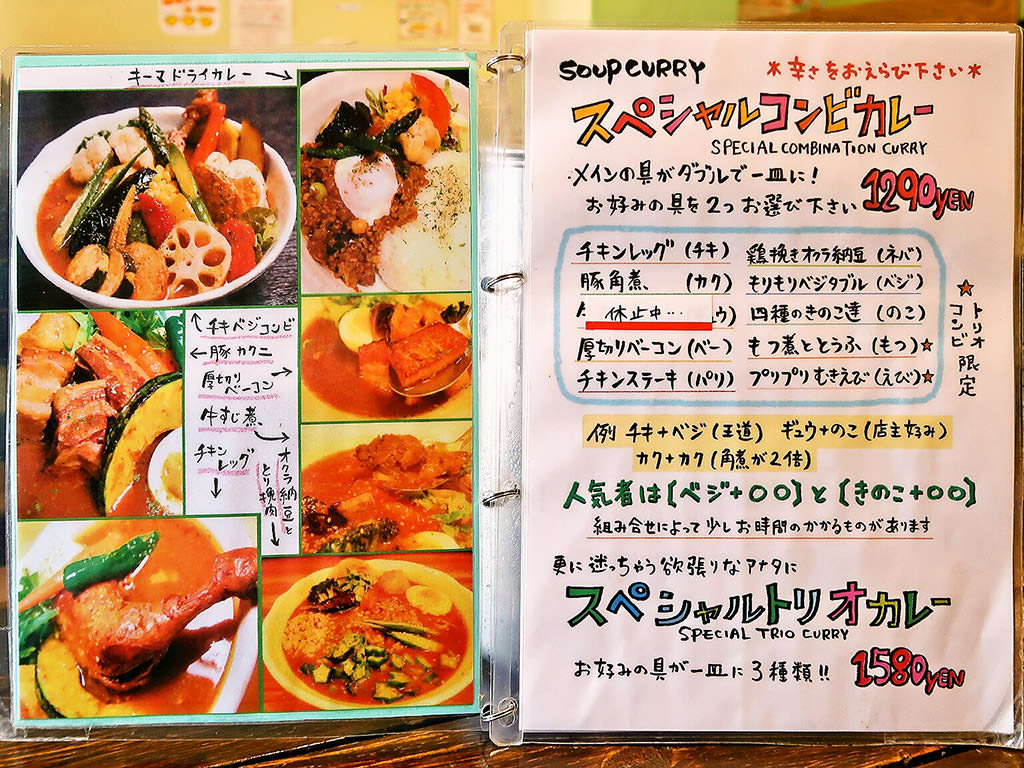 キーマドライカレー →
↑ チキベジコンビ
← 豚カクニ
厚切り
ベーコン →
牛すじ煮、
チキン
レッグ
↓
オクラ納豆と
とり挽肉
↓
SOUP CURRY
*辛さをおえらび下さい*
スペシャルコンビカレー
SPECIAL COMBINATION CURRY
メインの具がダブルで一皿に!
お好みの具を2つお選び下さい
1290YEN
チキンレッグ (チキ) 鶏挽きオクラ納豆 (ネバ)
豚角煮、 (カク) もりもりベジタブル (ベジ)
休止中… ウ) 四種のきのこ達 (のこ)
厚切りベーコン (ベー) もつ煮ととうふ (もつ)★
チキンステーキ (パリ) プリプリむきえび (えび)★
★トリオ
コンビ限定
例 チキ+ベジ(王道) ギュウ+のこ(店主好み)
カク+カク(角煮が2倍)
人気者は[ベジ+〇〇]と[きのこ+〇〇]
組み合せによって少しお時間のかかるものがあります
更に迷っちゃう欲張りなアナタに
スペシャルトリオカレー
SPECIAL TRIO CURRY
お好みの具が一皿に3種類!!
1580YEN